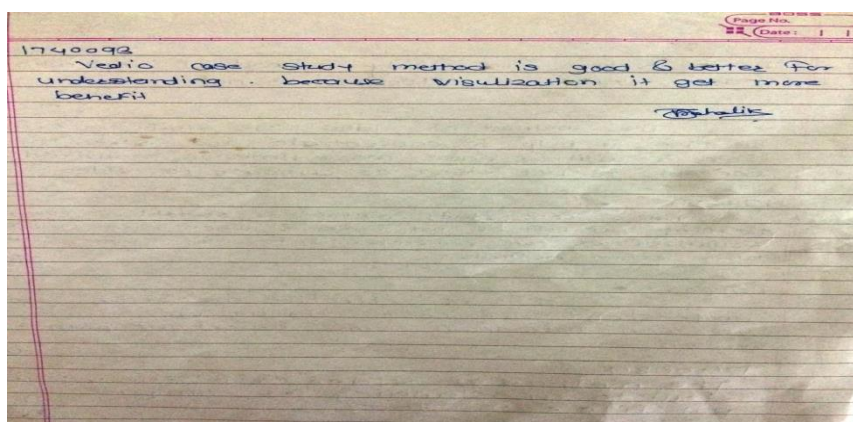 Page No.
Date:
1740092
Vedio case study method is good & better for
understanding. because visulization it get more
benefit